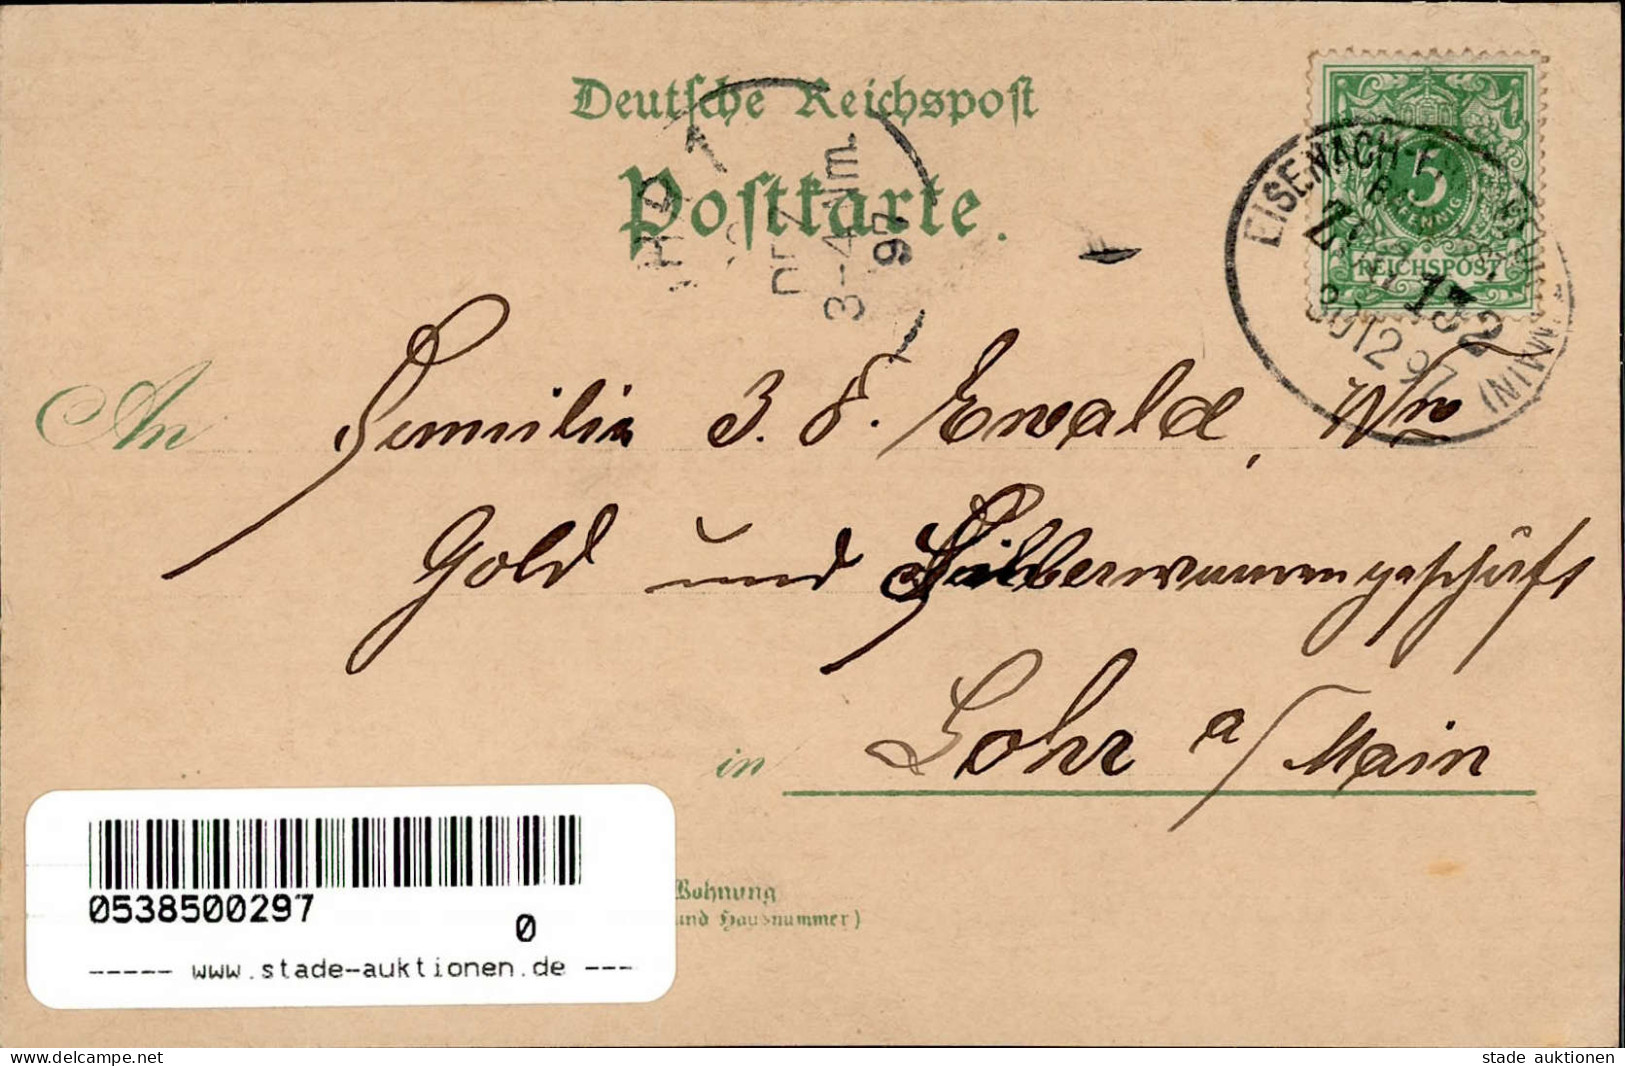 Deutsche Reichspost
Postkarte.
5
PFENNIG
REICHSPOST
EISENACH
MAIN)
132
301297
3-4 Nm.
97
An Familie J. F. Ewald, Ww
Gold und Silberwarengeschäft
in Lohr a/Main
Wohnung
und Hausnummer)
0538500297
0
----- www.stade-auktionen.de ---
www.delcampe.net
stade auktionen